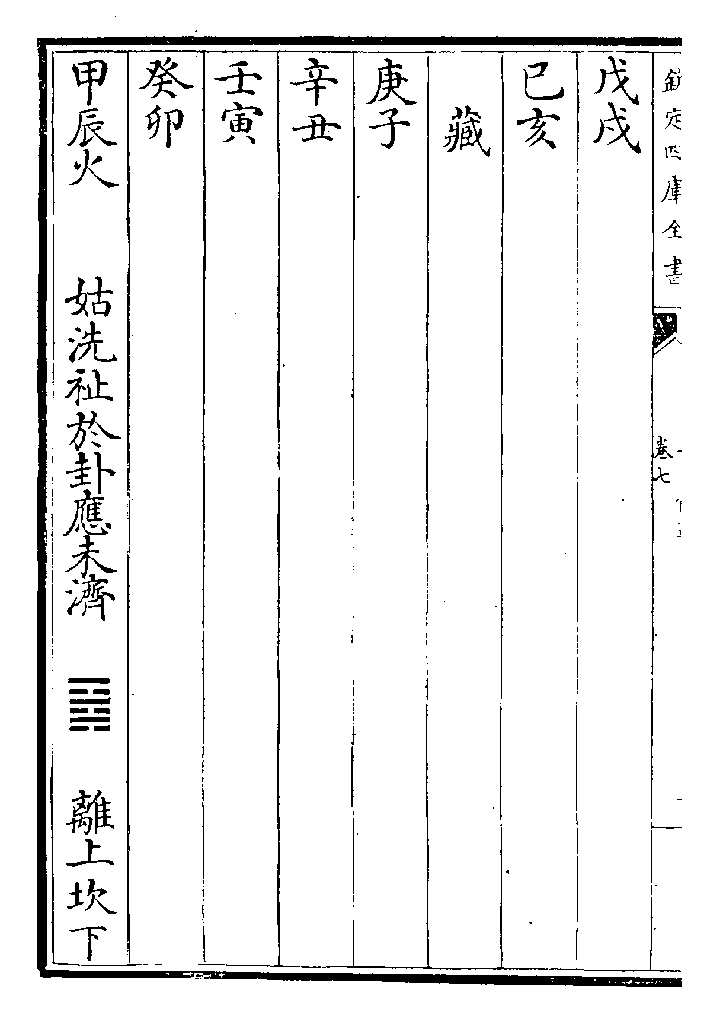 欽定四庫全書
卷七
戊戌
已亥
藏
庚子
辛丑
壬寅
癸卯
甲辰火 姑洗祉於卦應未濟 ䷿ 離上坎下